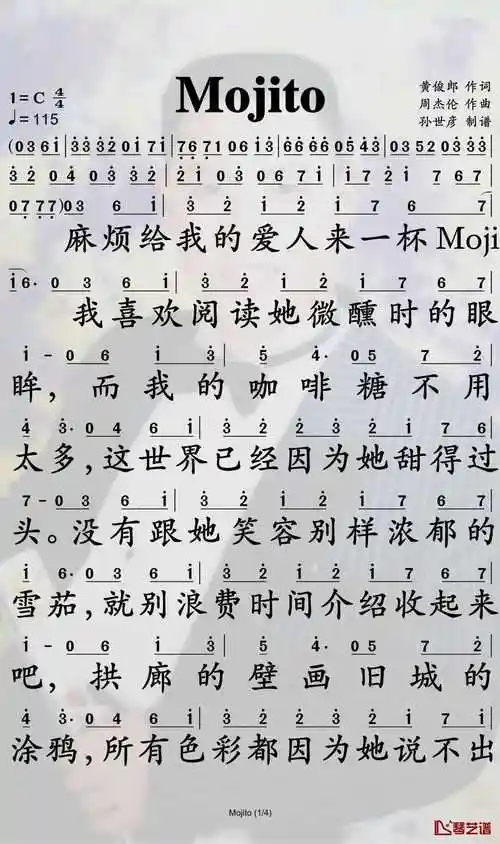 Mojito
1=C 4/4
♩=115
黄俊郎 作词
周杰伦 作曲
孙世彦 制谱
(0 3 6 i | 3 3 3 2 0 i 7 i | 7 6 7 1 0 6 i 3 | 6 6 6 6 0 5 4 3 | 0 3 5 2 0 3 3 3 |
3 2 0 3 0 4 3 2 | 2 i 0 3 0 6 7 i | 3 2 i 2 0 i | i 7 2 i 7 6 7 |
0 7 0 7 7) 0 3 6 i | 3 2 i 2 i 7 6 7 |
麻烦给我的爱人来一杯Moji
i 6· 0 3 6 i | 3 2 i 2 i 7 6 7 |
我喜欢阅读她微醺时的眼
i - 0 6 i 3 | 5 4· 0 5 7 2 |
眸，而我的咖啡糖不用
4 3· 0 4 6 i | 3 2 2 3 2 i 7 i |
太多，这世界已经因为她甜得过
7 - 0 3 6 i | 3 2 i 2 i 7 6 7 |
头。没有跟她笑容别样浓郁的
i 6· 0 3 6 i | 3 2 i 2 i 7 6 7 |
雪茄，就别浪费时间介绍收起来
i - 0 6 i 3 | 5 4· 0 5 7 2 |
吧，拱廊的壁画旧城的
4 3· 0 4 6 i | 3 2 2 3 2 i 7 i |
涂鸦，所有色彩都因为她说不出
Mojito (1/4)
琴艺谱